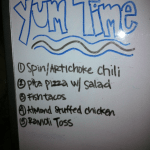 Yum Time
① Spin/Artichoke Chili
② pita pizza w/ salad
③ Fish tacos
④ Almond stuffed chicken
⑤ Ravioli Toss